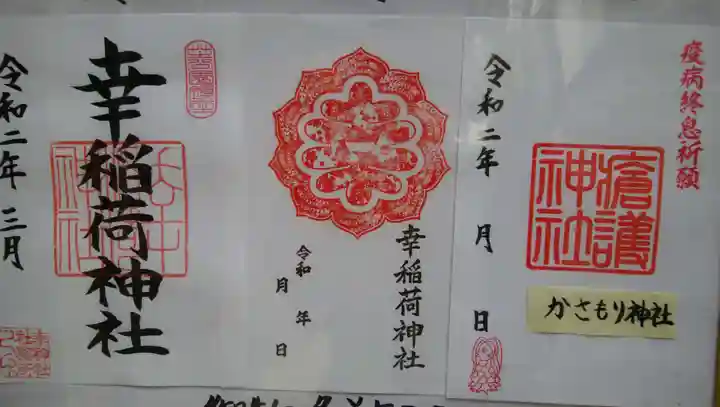 疫病終息祈願
瘡護神社
かさもり神社
令和二年 月 日
幸稲荷神社
令和 年 月 日
幸稲荷神社
令和二年三月